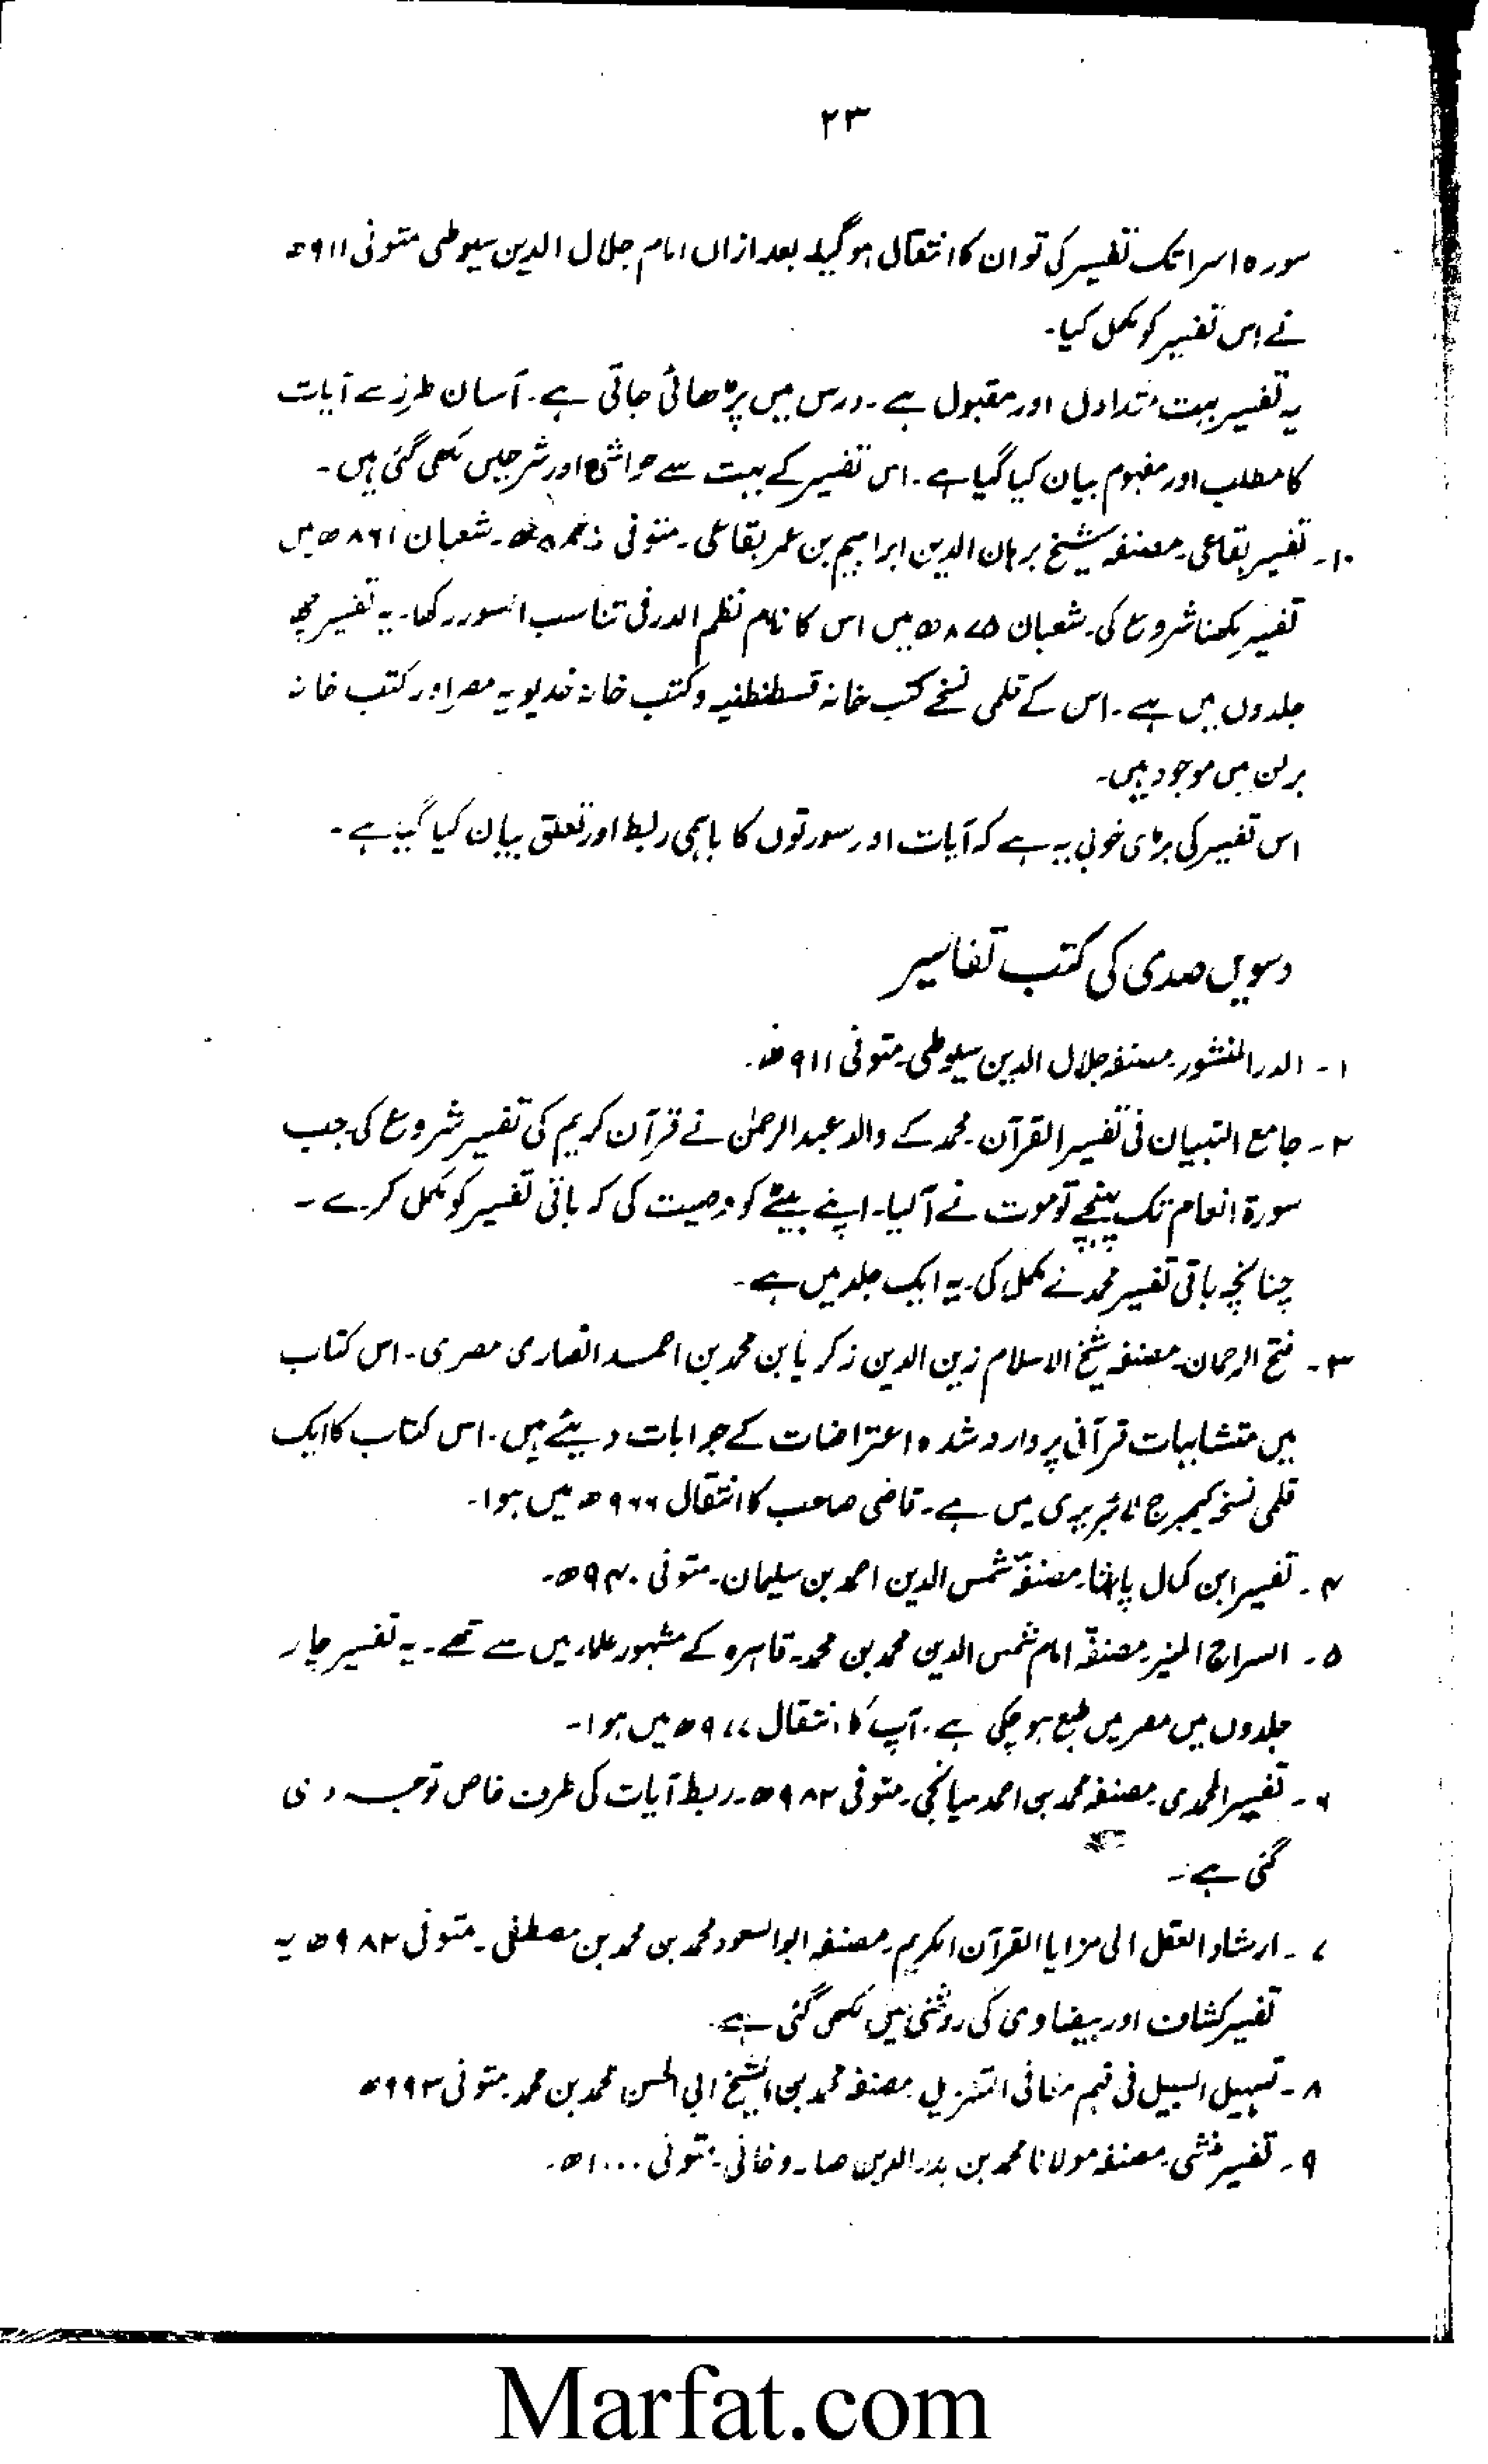 ۲۳
سورہ اسرا تک تفسیر کی تو ان کا انتقال ہو گیا۔ بعد ازاں امام جلال الدین سیوطی متوفی ۹۱۱ھ
نے اس تفسیر کو مکمل کیا۔
یہ تفسیر بہت متداول اور مقبول ہے۔ درس میں پڑھائی جاتی ہے۔ آسان طرز سے آیات
کا مطلب اور مفہوم بیان کیا گیا ہے۔ اس تفسیر کے بہت سے حواشی اور شرحیں لکھی گئی ہیں۔
۱۰۔ تفسیر بقاعی۔ مصنفہ شیخ برہان الدین ابراہیم بن عمر بقاعی۔ متوفی ۔ شعبان ۸۶۱ھ میں
تفسیر لکھنا شروع کی۔ شعبان ۸۷۵ھ میں اس کا نام نظم الدر فی تناسب السور رکھا۔ یہ تفسیر چھ
جلدوں میں ہے۔ اس کے قلمی نسخے کتب خانہ قسطنطنیہ و کتب خانہ خدیویہ مصر اور کتب خانہ
برلن میں موجود ہیں۔
اس تفسیر کی بڑی خوبی یہ ہے کہ آیات اور سورتوں کا باہمی ربط اور تعلق بیان کیا گیا ہے۔
دسویں صدی کی کتب تفاسیر
۱۔ الدر المنشور۔ مصنفہ جلال الدین سیوطی۔ متوفی ۹۱۱ھ۔
۲۔ جامع التبیان فی تفسیر القرآن۔ محمد کے والد عبدالرحمٰن نے قرآن کریم کی تفسیر شروع کی۔ جب
سورۃ انعام تک پہنچے تو موت نے آ لیا۔ اپنے بیٹے کو وصیت کی کہ باقی تفسیر کو مکمل کرے۔
چنانچہ باقی تفسیر محمد نے مکمل کی۔ یہ ایک جلد میں ہے۔
۳۔ فتح الرحمان۔ مصنفہ شیخ الاسلام زین الدین زکریا بن محمد بن احمد انصاری مصری۔ اس کتاب
میں متشابہات قرآنی پر وارد شدہ اعتراضات کے جوابات دیئے ہیں۔ اس کتاب کا ایک
قلمی نسخہ کیمبرج لائبریری میں ہے۔ قاضی صاحب کا انتقال ۹۶۶ھ میں ہوا۔
۴۔ تفسیر ابن کمال پاشا۔ مصنفہ شمس الدین احمد بن سلیمان۔ متوفی ۹۴۰ھ۔
۵۔ السراج المنیر۔ مصنفہ امام شمس الدین محمد بن محمد۔ قاہرہ کے مشہور علماء میں سے تھے۔ یہ تفسیر چار
جلدوں میں مصر میں طبع ہو چکی ہے۔ آپ کا انتقال ۹۷۷ھ میں ہوا۔
۶۔ تفسیر المحمدی۔ مصنفہ محمد بن احمد میانجی۔ متوفی ۹۸۲ھ۔ ربط آیات کی طرف خاص توجہ دی
گئی ہے۔
۷۔ ارشاد العقل الی مزایا القرآن الکریم۔ مصنفہ ابوالسعود محمد بن محمد بن مصطفٰی۔ متوفی ۹۸۲ھ یہ
تفسیر کشاف اور بیضاوی کی روشنی میں لکھی گئی ہے۔
۸۔ تسہیل السبیل فی فہم معانی التنزیل۔ مصنفہ محمد بن الشیخ ابی الحسن محمد بن محمد۔ متوفی ۹۹۳ھ
۹۔ تفسیر منشی۔ مصنفہ مولانا محمد بن بدر الدین صاروخانی۔ متوفی ۱۰۰۰ھ۔
Marfat.com